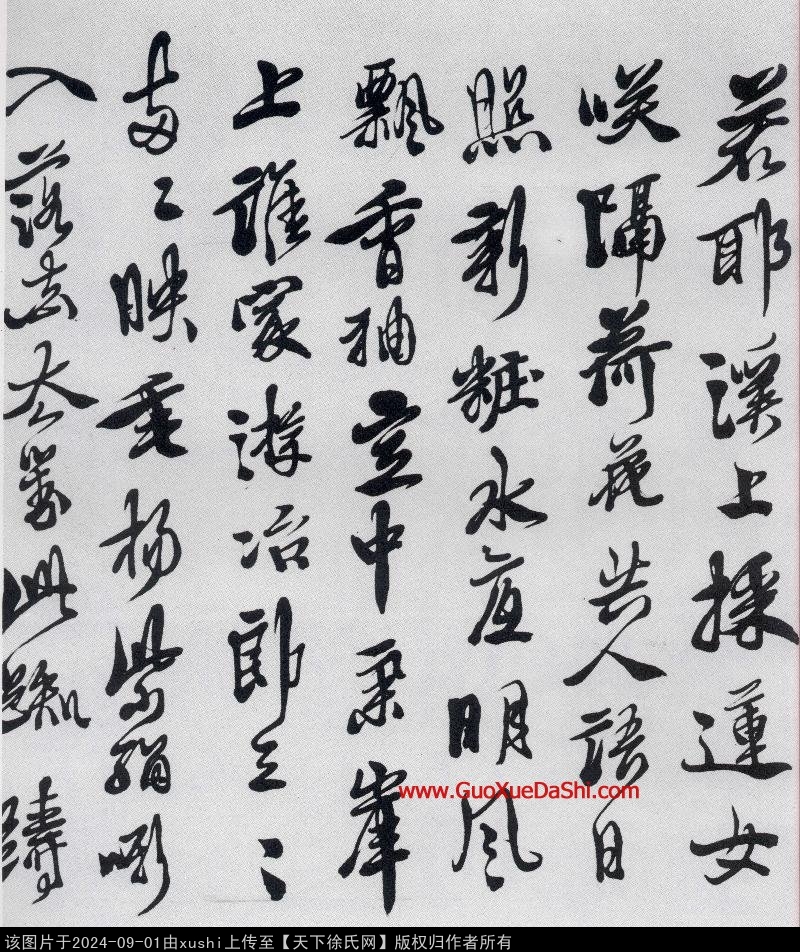 若耶溪上採蓮女
咲隔荷花共人語日
照新粧水底明風
飄香袖空中舉岸
上誰家游冶郎三〻
五〻映垂楊紫騮嘶
入落去此踟躊
www.GuoXueDaShi.com
该图片于2024-09-01由xushi上传至【天下徐氏网】版权归作者所有